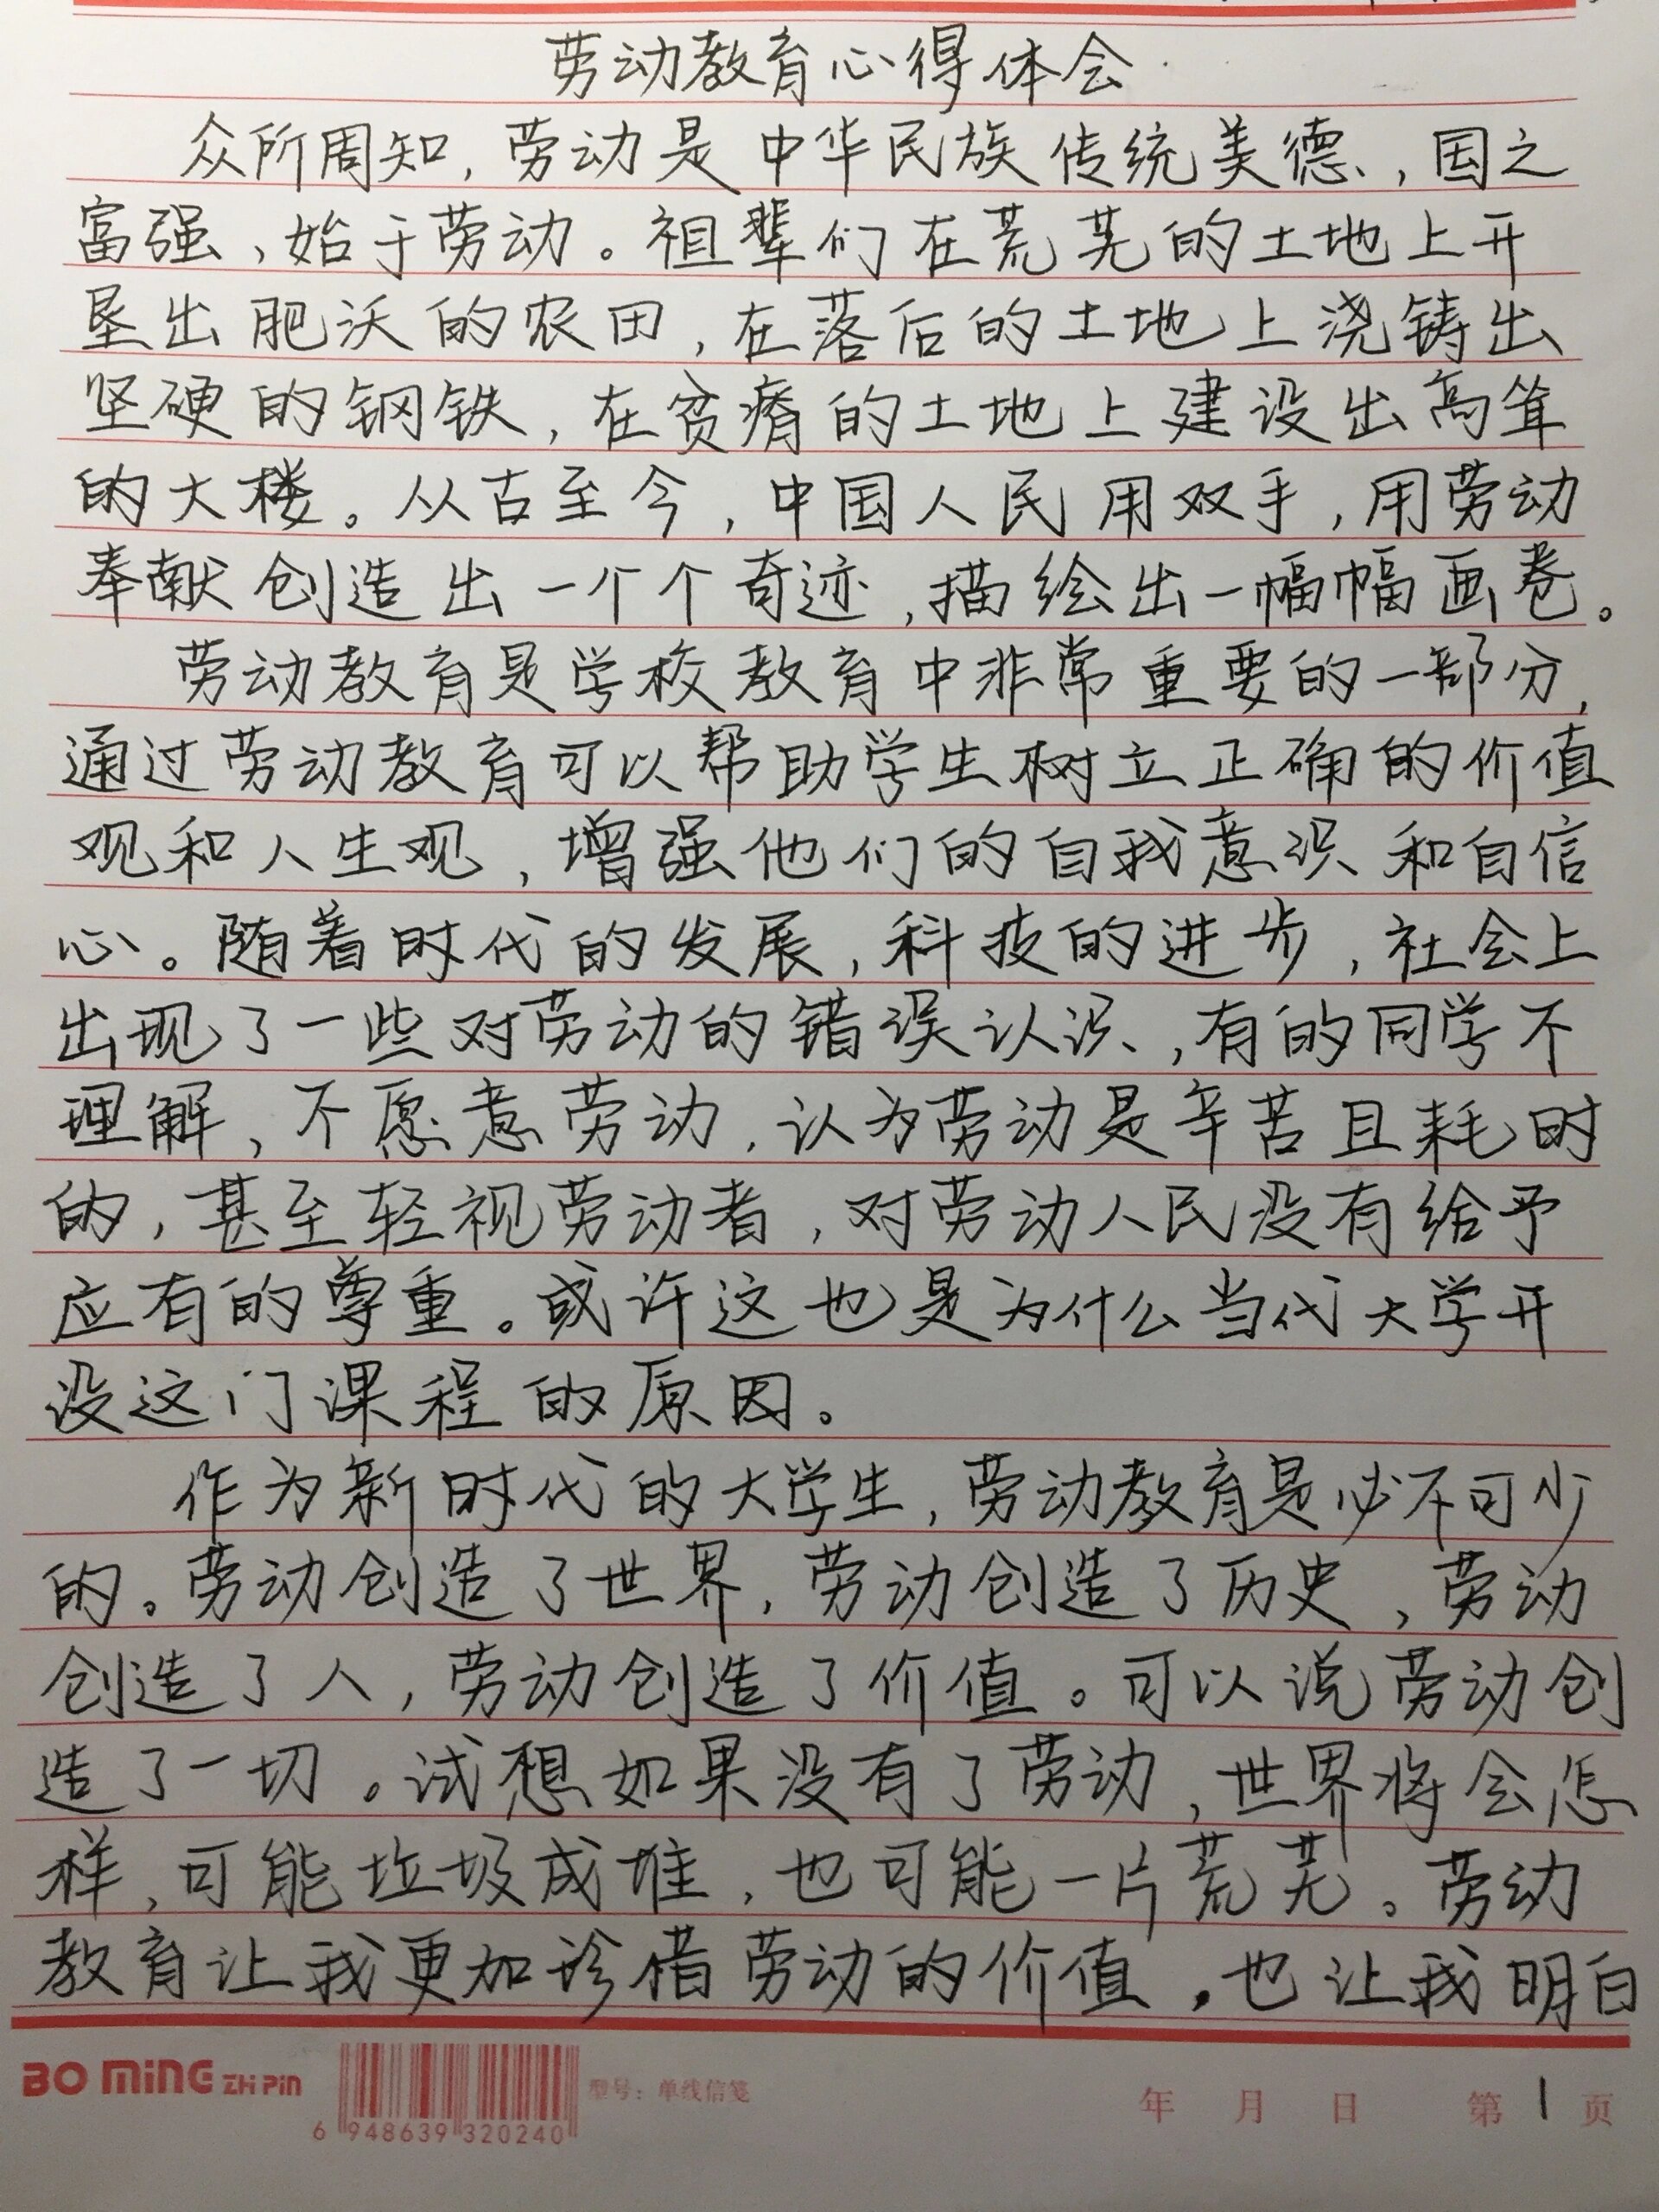 劳动教育心得体会
众所周知，劳动是中华民族传统美德，国之
富强，始于劳动。祖辈们在荒芜的土地上开
垦出肥沃的农田，在落后的土地上浇铸出
坚硬的钢铁，在贫瘠的土地上建设出高耸
的大楼。从古至今，中国人民用双手，用劳动
奉献创造出一个个奇迹，描绘出一幅幅画卷。
劳动教育是学校教育中非常重要的一部分，
通过劳动教育可以帮助学生树立正确的价值
观和人生观，增强他们的自我意识和自信
心。随着时代的发展，科技的进步，社会上
出现了一些对劳动的错误认识，有的同学不
理解，不愿意劳动，认为劳动是辛苦且耗时
的，甚至轻视劳动者，对劳动人民没有给予
应有的尊重。或许这也是为什么当代大学开
设这门课程的原因。
作为新时代的大学生，劳动教育是必不可少
的。劳动创造了世界，劳动创造了历史，劳动
创造了人，劳动创造了价值。可以说劳动创
造了一切。试想如果没有了劳动，世界将会怎
样，可能垃圾成堆，也可能一片荒芜。劳动
教育让我更加珍惜劳动的价值，也让我明白
BO MING ZHI PIN
型号：单线信笺
6 948639 320240
年 月 日 第 1 页